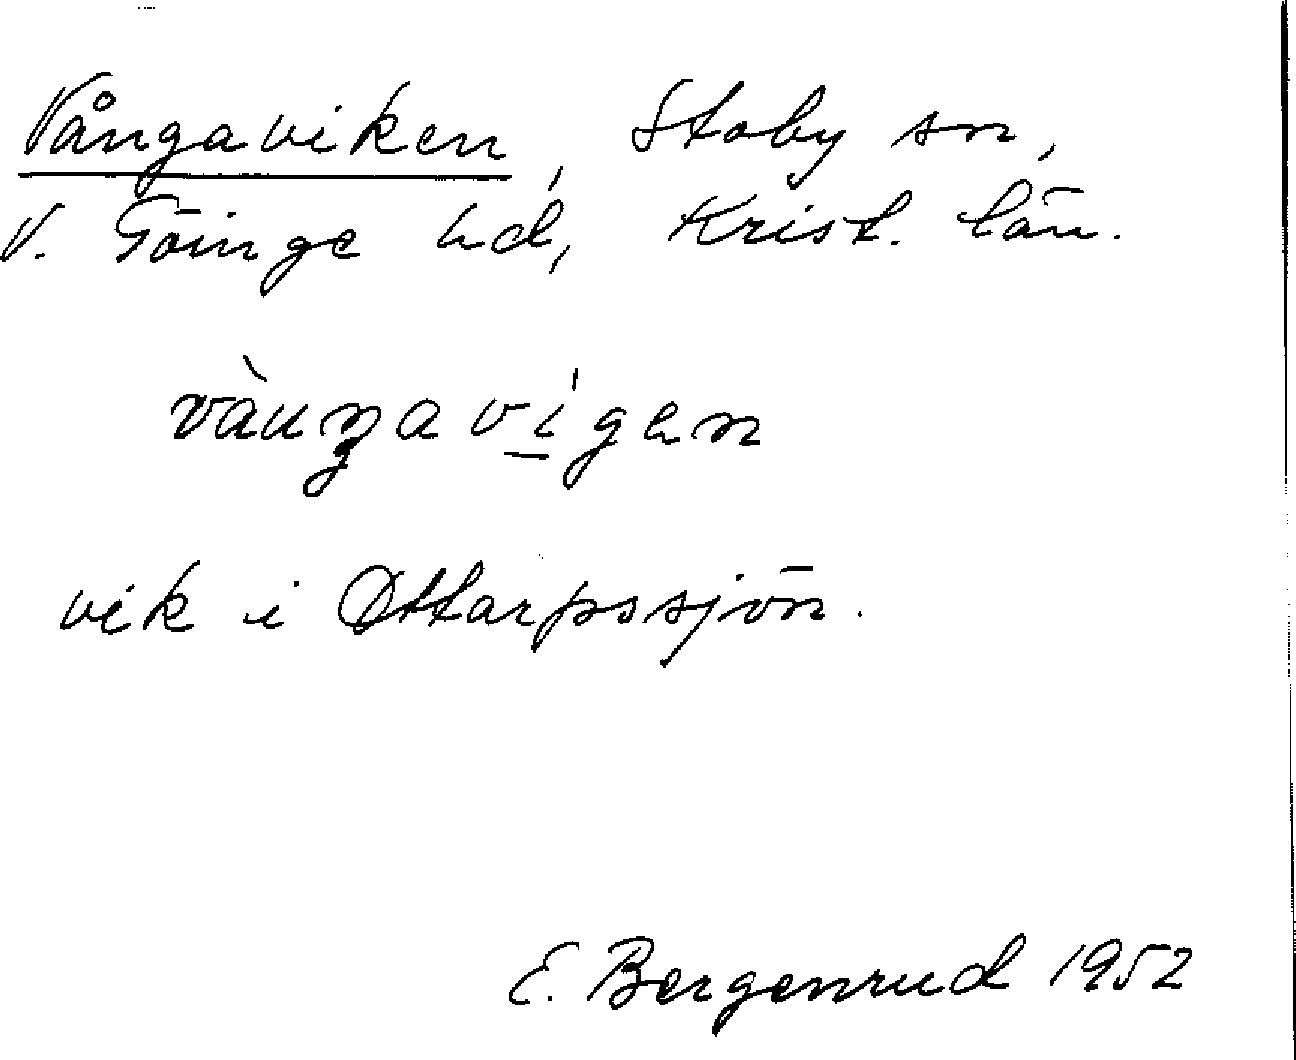 Vångaviken, Stoby sn,
V. Göinge hd, Krist. län.
vàuŋavígen
vik i Ottarpssjön.
E. Bergenrud 1952